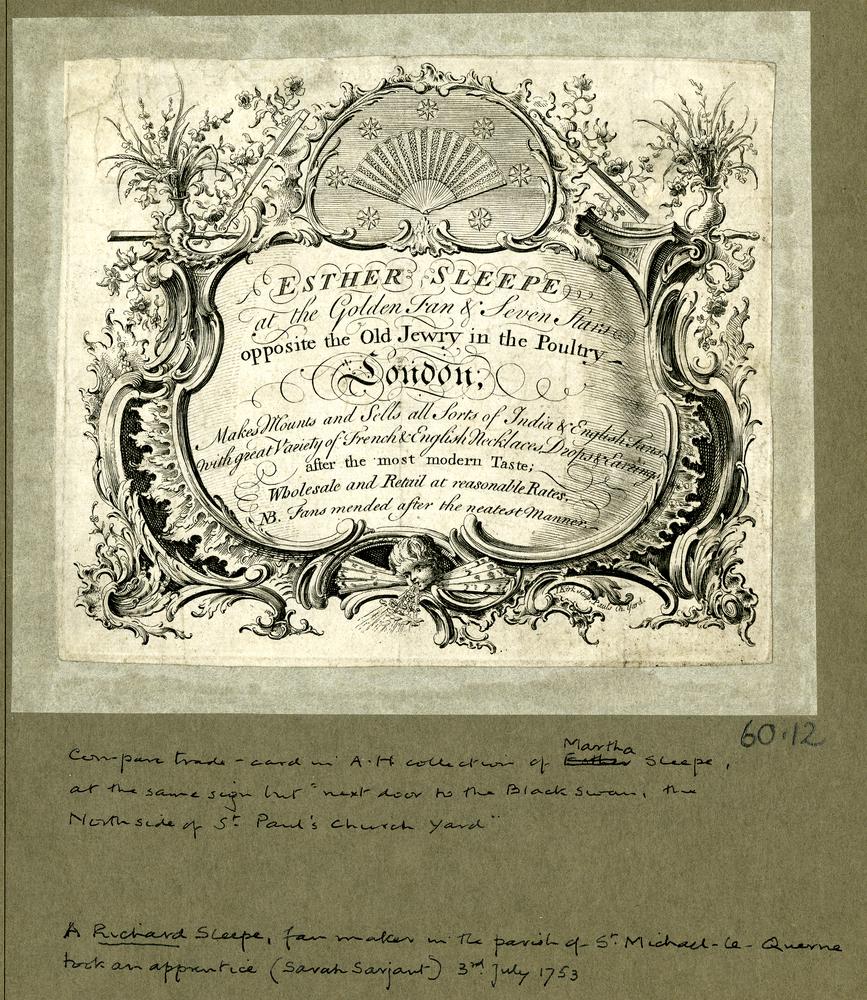 ESTHER SLEEPE
at the Golden Fan & Seven Stars
opposite the Old Jewry in the Poultry
London;
Makes Mounts and Sells all Sorts of India & English Fans
with great Variety of French & English Necklaces, Drops & Earrings
after the most modern Taste;
Wholesale and Retail at reasonable Rates.
NB. Fans mended after the neatest Manner.
Kirk sculp Pauls Ch. Yard.
60·12
Compare trade-card in A.H collection of Martha Esther Sleepe,
at the same sign but "next door to the Black Swan, the
North side of St Paul's Church Yard"
A Richard Sleepe, fan maker in the parish of St Michael-le-Querne
took an apprentice (Sarah Sarjant) 3rd July 1753